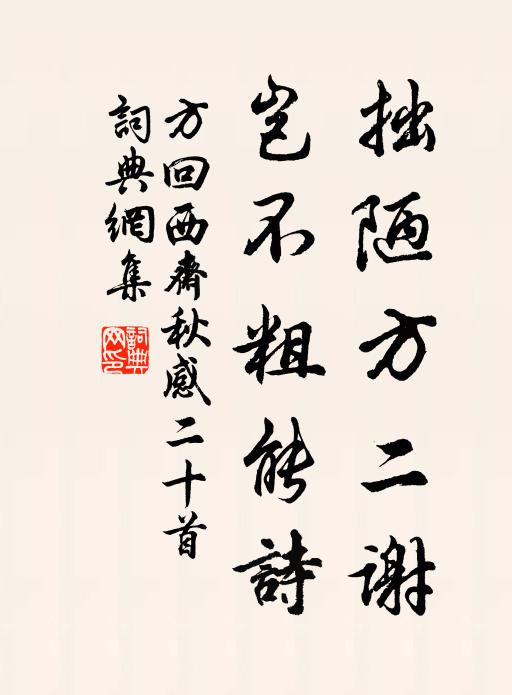 拙陋方二谢
岂不粗能詩
方回西齋秋感二十首
詞典網集
詞典網印